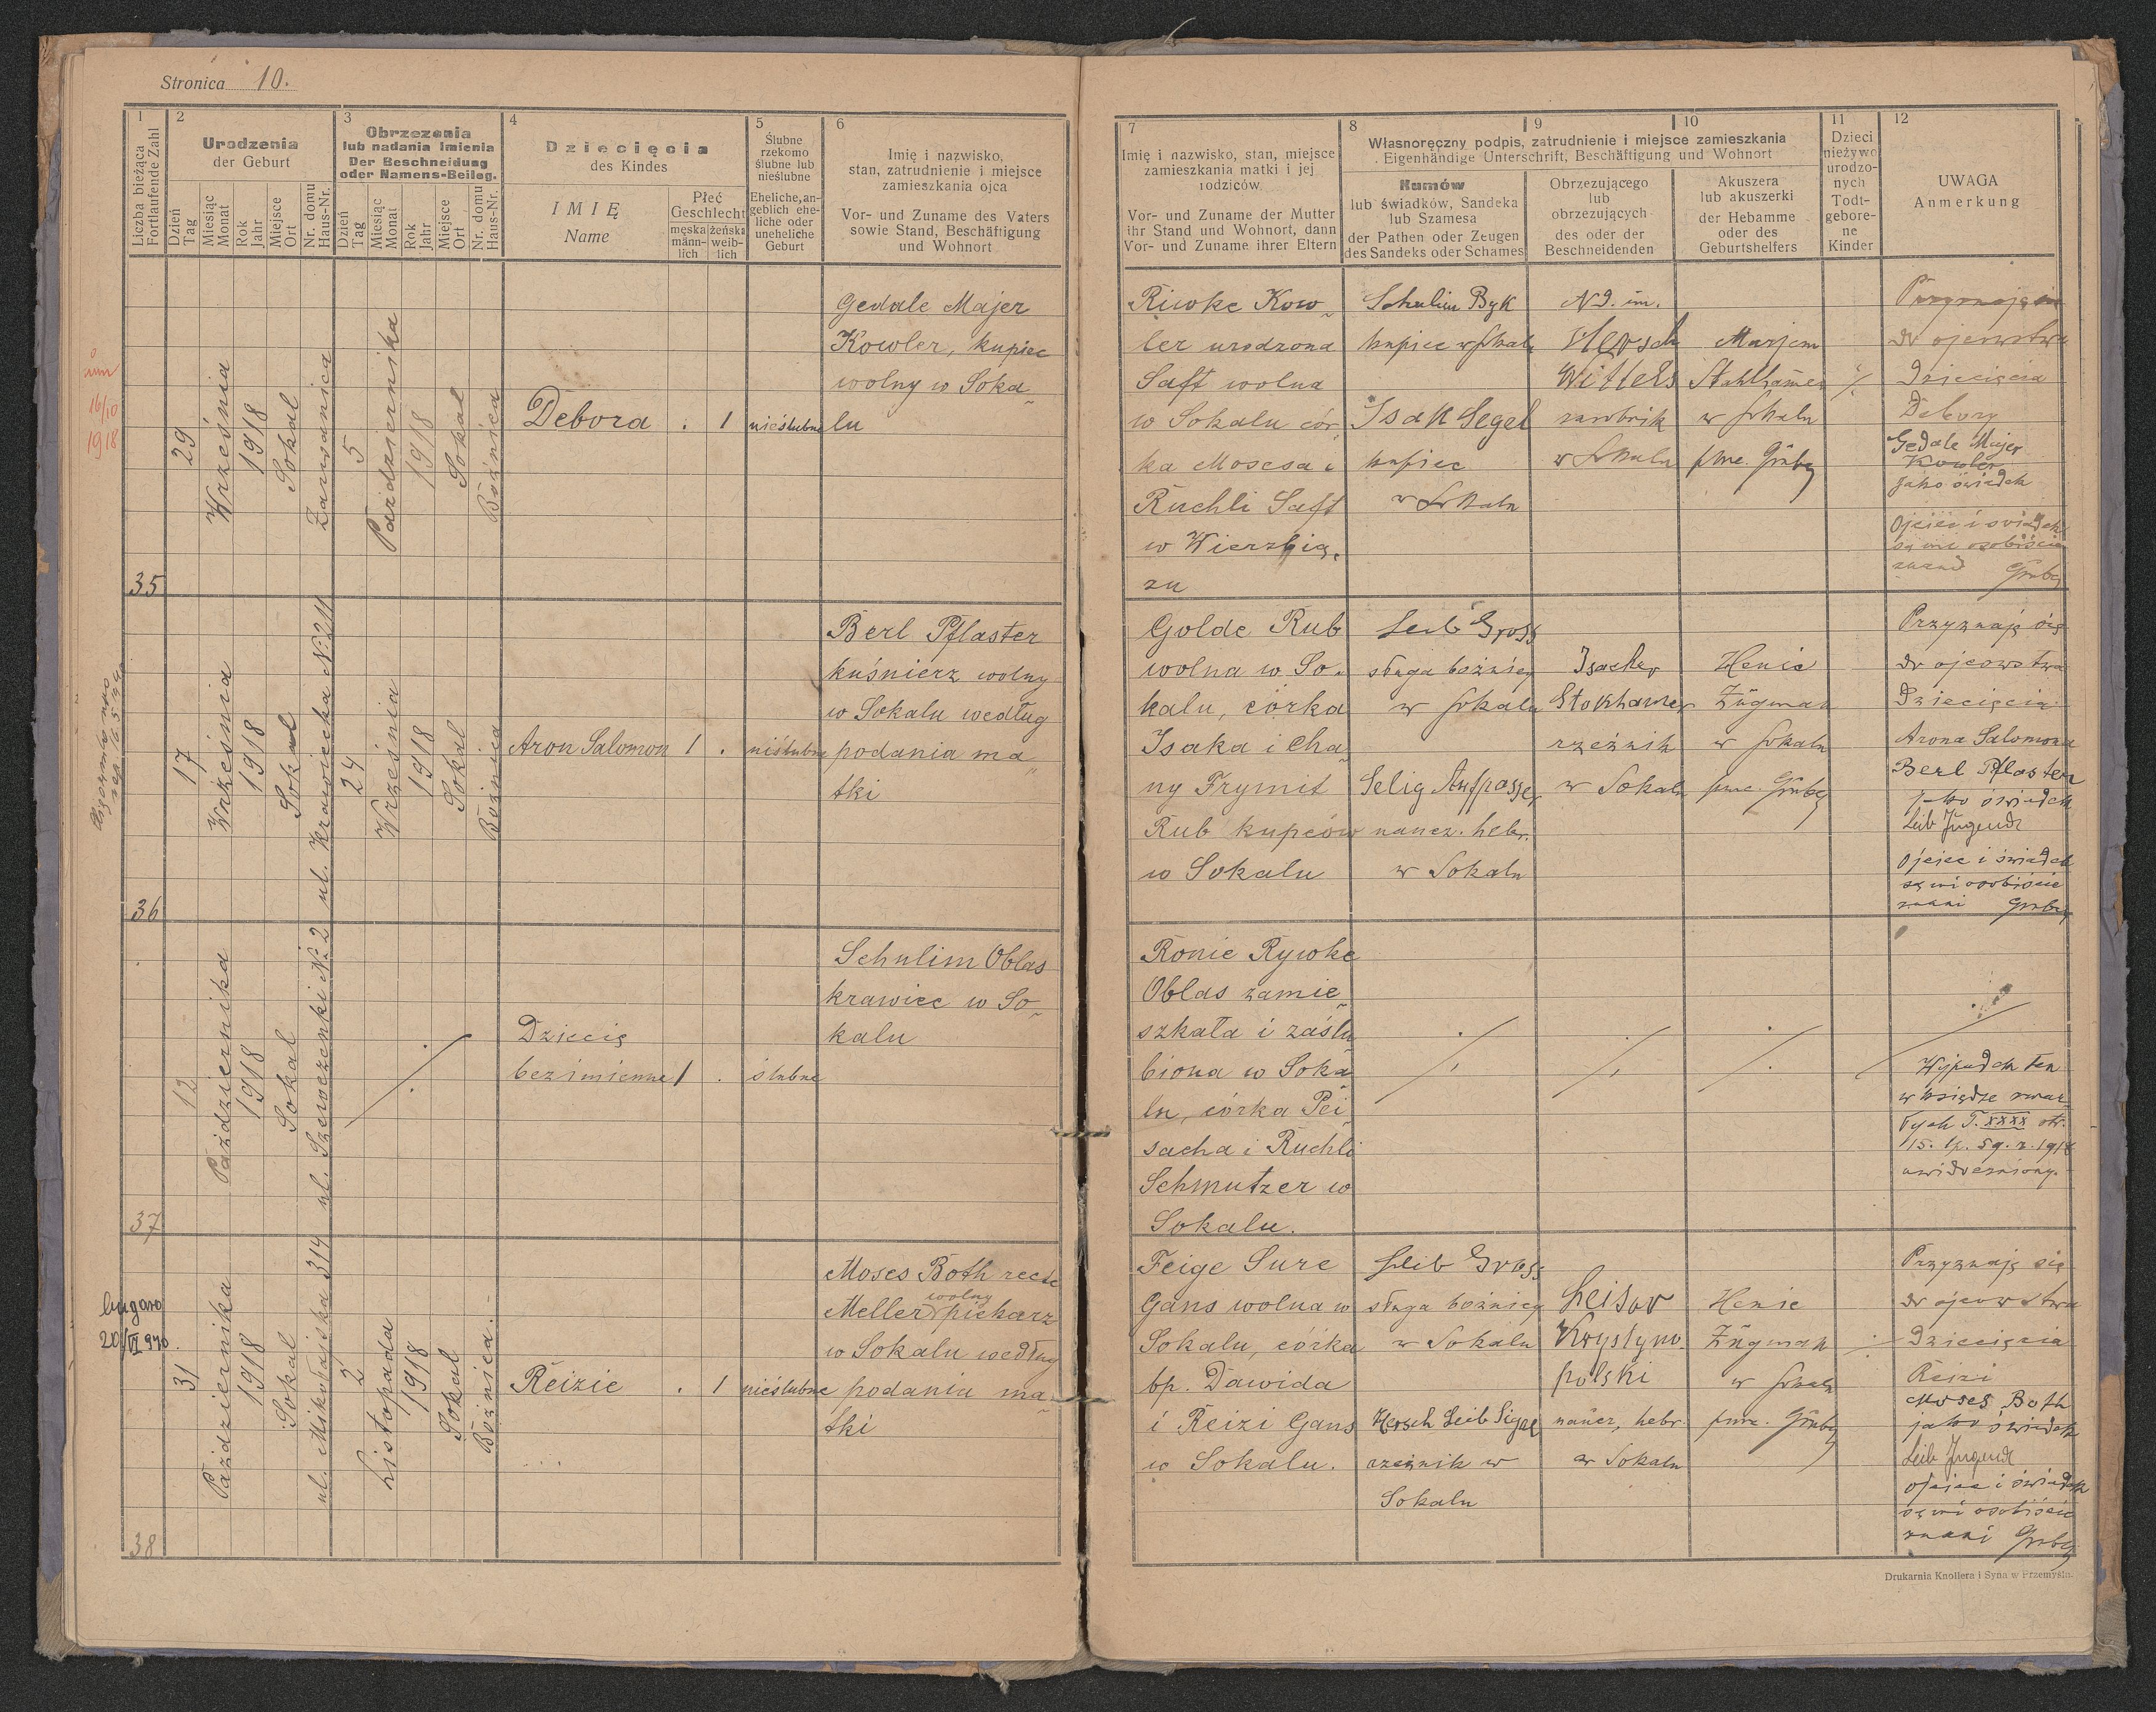 Stronica 10.
1
Liczba bieżąca
Fortlaufende Zahl
2
Urodzenia
der Geburt
Dzień
Tag
Miesiąc
Monat
Rok
Jahr
Miejsce
Ort
Nr. domu
Haus-Nr.
3
Obrzezania
lub nadania Imienia
Der Beschneidung
oder Namens-Beileg.
Dzień
Tag
Miesiąc
Monat
Rok
Jahr
Miejsce
Ort
Nr. domu
Haus-Nr.
4
Dziecięcia
des Kindes
IMIĘ
Name
Płeć
Geschlecht
męska
männ-
lich
żeńska
weib-
lich
5
Ślubne
rzekomo
ślubne lub
nieślubne
Eheliche, an-
geblich ehe-
liche oder
uneheliche
Geburt
6
Imię i nazwisko,
stan, zatrudnienie i miejsce
zamieszkania ojca
Vor- und Zuname des Vaters
sowie Stand, Beschäftigung
und Wohnort
7
Imię i nazwisko, stan, miejsce
zamieszkania matki i jej
rodziców
Vor- und Zuname der Mutter
ihr Stand und Wohnort, dann
Vor- und Zuname ihrer Eltern
8
9
10
Własnoręczny podpis, zatrudnienie i miejsce zamieszkania
Eigenhändige Unterschrift, Beschäftigung und Wohnort
Kumów
lub świadków, Sandeka
lub Szamesa
der Pathen oder Zeugen
des Sandeks oder Schames
Obrzezującego
lub
obrzezujących
des oder der
Beschneidenden
Akuszera
lub akuszerki
der Hebamme
oder des
Geburtshelfers
11
Dzieci
nieżywo
urodzo-
nych
Todt-
gebore-
ne
Kinder
12
UWAGA
Anmerkung
um
16/10
1918
35
29
Września
1918
Sokal
5
Październnika
1918
Sokal
Bóźnica
Debora . 1 nieślubne
Gedale Majer
Kowler, kupiec
wolny w Soka-
lu
Riwke Kow-
ler urodzona
Saft wolna
w Sokalu cór-
ka Mosesa i
Ruchli Saft
w Wierzbią-
zu
Schulim Byk
kupiec w Sokalu
Isak Segel
kupiec
w Sokalu
Hersch
Wittels
w Sokalu
Marjem
w Sokalu
Przyznaję się
do ojcowstwa
Dziecięcia
Debory
Gedale Majer
Kowler
jako świadek
Ojciec i świadek
są mi osobiście
36
17
Września
1918
Sokal
ul. Krawiecka № 211
24
Września
1918
Sokal
Bóźnica
Aron Salomon 1 . nieślubne
Berl Pflaster
kuśnierz wolny
w Sokalu według
podania ma-
tki
Golde Rub
wolna w So-
kalu, córka
Isaka i Cha-
ny Frymit
Rub kupców
w Sokalu
Leib Gross
sługa bożnicy
w Sokalu
Selig Aufpasser
naucz. hebr.
w Sokalu
Isacher
Stokhamer
rzeźnik
w Sokalu
Henie
Zügman
w Sokalu
Przyznaję się
do ojcowstwa
Dziecięcia
Arona Salomona
Berl Pflaster
jako świadek
Leib Jugend
Ojciec i świadek
są mi osobiście
znani
37
12
Października
1918
Sokal
ul. Szewczenki № 2
Dziecię
bezimienne 1 . ślubne
Schulim Oblas
krawiec w So-
kalu
Ronie Rywke
Oblas zamie-
szkała i zaślu-
biona w Soka-
lu, córka Pei-
sacha i Ruchli
Schmutzer w
Sokalu.
Wypadek ten
w księdze zmar-
łych T. XXXX str.
15. lp. 59. r. 1918
uwidoczniony.
20/VI 940.
38
31
Października
1918
Sokal
ul. Mikołajska 314
2
Listopada
1918
Sokal
Bóźnica.
Reizie . 1 nieślubne
Moses Both recte
Meller wolny piekarz
w Sokalu według
podania ma-
tki
Feige Sure
Gans wolna w
Sokalu, córka
bp. Dawida
i Reizi Gans
w Sokalu.
Leib Gross
sługa bożnicy
w Sokalu
Hersch Leib Sigal
rzeźnik w
Sokalu
Leisor
Krystyno-
polski
naucz. hebr.
w Sokalu
Henie
Zügman
w Sokalu
Przyznaję się
do ojcowstwa
Dziecięcia
Reizi
Moses Both
jako świadek
Leib Jugend
Ojciec i świadek
są mi osobiście
znani
Drukarnia Knollera i Syna w Przemyślu.